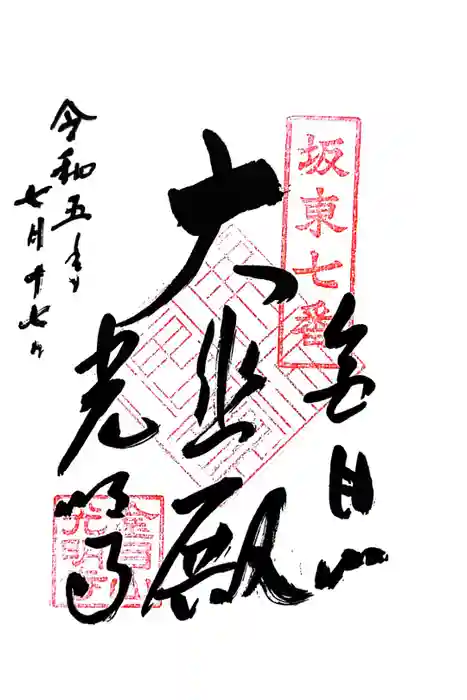 坂東七番
金目山
大悲殿
光明寺
令和五年
七月十七日
金目山
光明寺